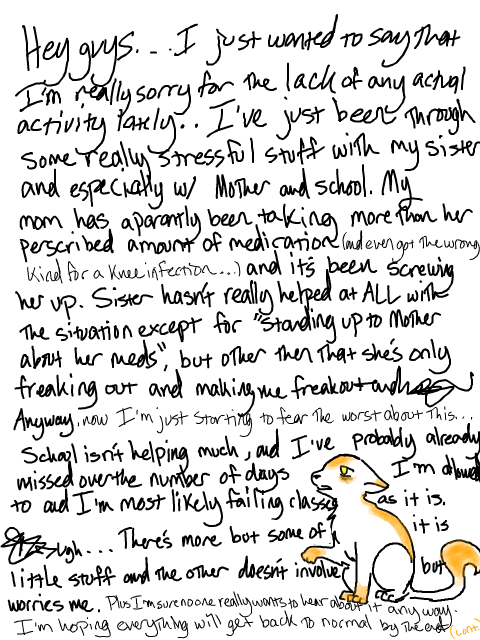 Hey guys... I just wanted to say that
I'm really sorry for the lack of any actual
activity lately.. I've just been through
some really stressful stuff with my sister
and especially w/ Mother and school. My
mom has aparantly been taking more than her
perscribed amount of medication (and even got the wrong
kind for a knee infection...) and it's been screwing
her up. Sister hasn't really helped at ALL with
the situation except for "standing up to Mother
about her meds", but other then that she's only
freaking out and making me freakout
Anyway, now I'm just starting to fear the worst about this...
School isn't helping much, and I've probably already
missed over the number of days I'm allowed
to and I'm most likely failing classes as it is.
Ugh.... There's more but some of it is
little stuff and the other doesn't involve but
worries me. Plus I'm sure no one really wants to hear about it any way.
I'm hoping everything will get back to normal by the end (cont.)